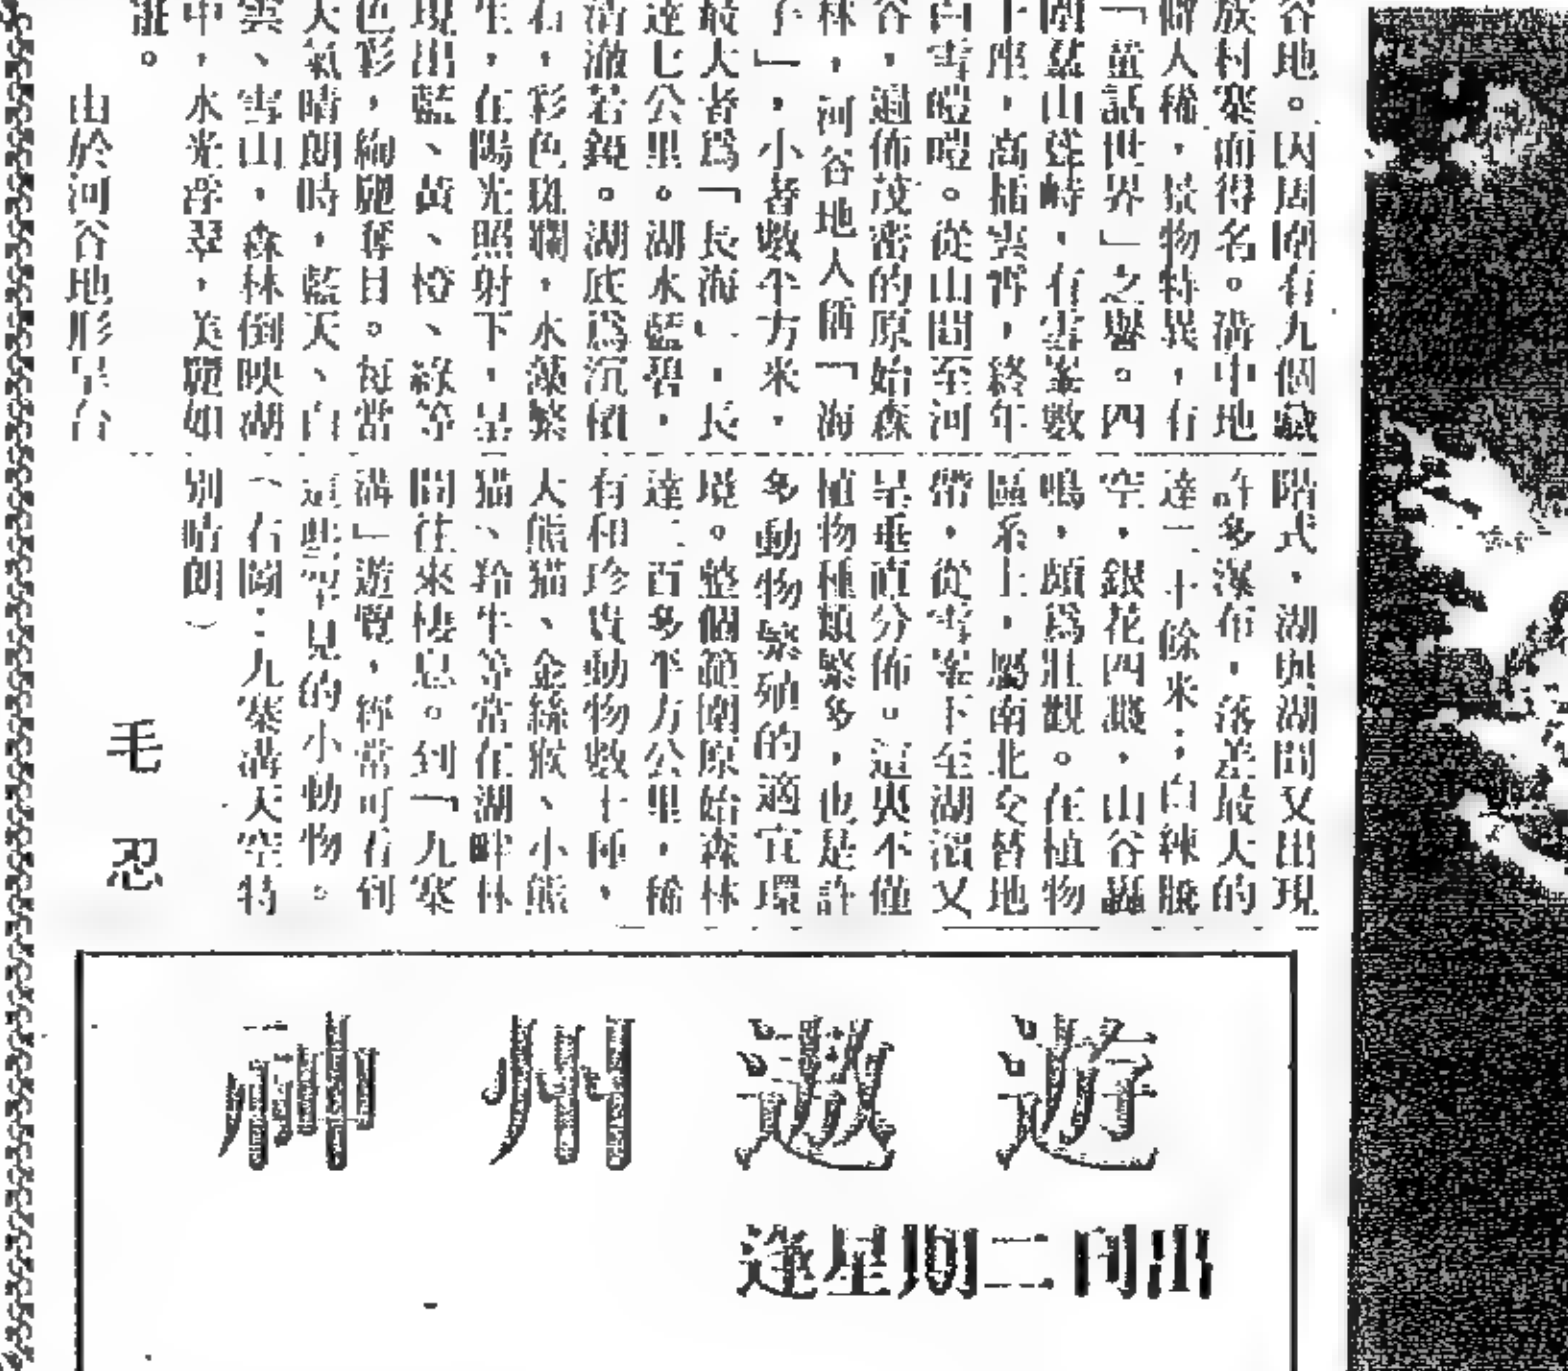 谷地。因周圍有九個藏
族村寨而得名。溝中地
僻人稀,景物特異,有
「童話世界」之譽。四
圍羣山聳峙,有雪峯數
十座,高插雲霄,終年
白雪皚皚。從山間至河
谷,遍佈茂密的原始森
林,河谷地人稱「海
子」,小者數半方米,
最大者爲「長海」,長
達七公里。湖水藍碧,
清澈若鏡。湖底爲沉積
石,彩色斑斕,水藻繁
生,在陽光照射下,呈
現出藍、黃、橙、綠等
色彩,絢麗奪目。每當
天氣晴朗時,藍天、白
雲、雪山,森林倒映湖
中,水光浮翠,美麗如
誑。
由於河谷地形呈台
階式,湖與湖間又出現
許多瀑布,落差最大的
達二十餘米;白練騰
空,銀花四濺,山谷轟
鳴,頗爲壯觀。在植物
區系上,屬南北交替地
帶,從雪峯下至湖濱又
呈垂直分佈。這裏不僅
植物種類繁多,也是許
多動物繁殖的適宜環
境。整個範圍原始森林
達二百多平方公里,稀
有和珍貴動物數十種,
大熊猫、金絲猴、小熊
猫、羚牛等常在湖畔林
間往來棲息。到「九寨
溝」遊覽,經常可看到
這些罕見的小動物。
(右圖:九寨溝天空特
別晴朗)
毛忍
遊遨州神
逢星期二刊出